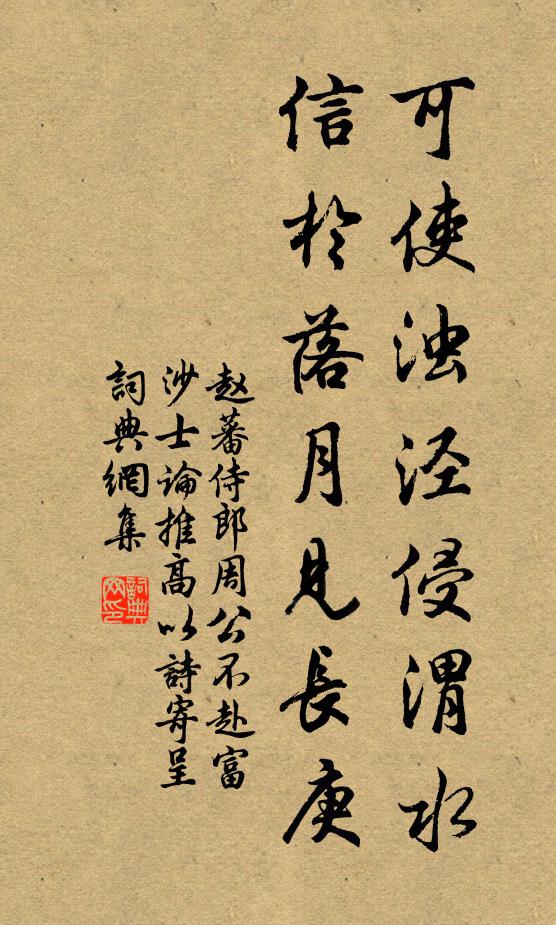 可使浊泾侵渭水
信於落月見長庚
赵蕃侍郎周公不赴富
沙士论推高以詩寄呈
詞典網集
詞典网印